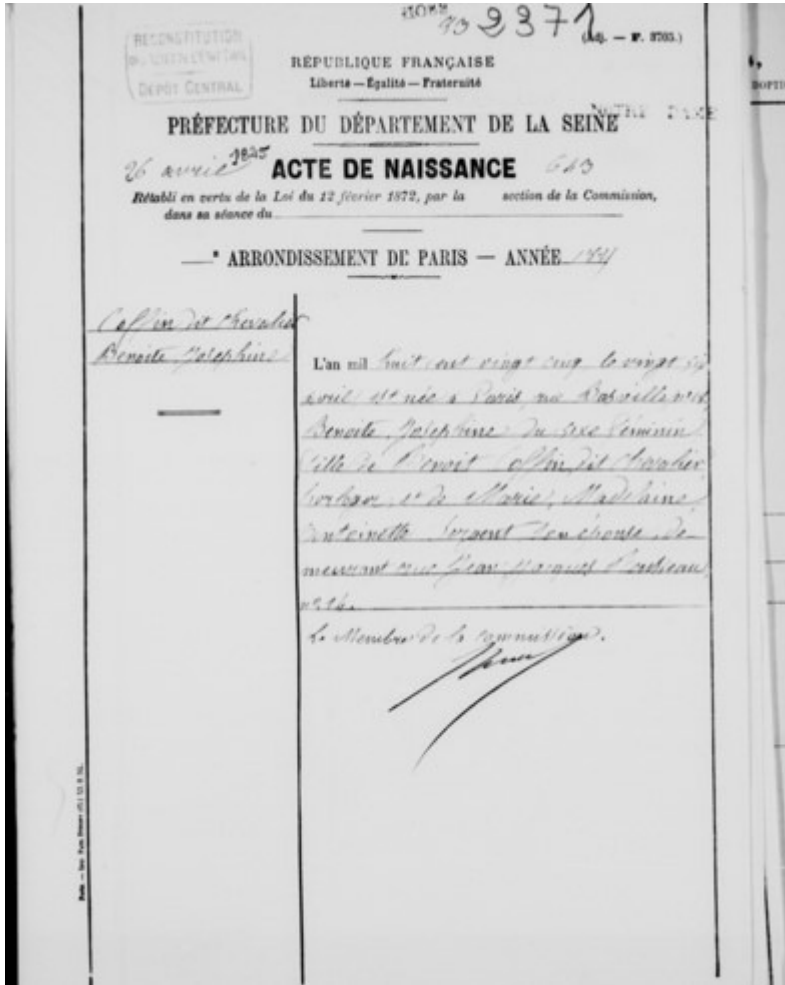 2371
(Adj. — Nº. 3703.)
RECONSTITUTION
DES ACTES DE L'ÉTAT CIVIL
DÉPÔT CENTRAL
RÉPUBLIQUE FRANÇAISE
Liberté — Égalité — Fraternité
NOTRE DAME
PRÉFECTURE DU DÉPARTEMENT DE LA SEINE
26 avril 1825
ACTE DE NAISSANCE
Rétabli en vertu de la Loi du 12 février 1872, par la section de la Commission,
dans sa séance du
ARRONDISSEMENT DE PARIS — ANNÉE
Coffin dit Chevalier
Benoite Josephine
L'an mil huit cent vingt cinq le vingt six
avril est née à Paris, rue
Benoite Josephine du sexe féminin
fille de Benoit Coffin dit Chevalier
et de Marie Madelaine
Antoinette Sergent son épouse, de-
meurant rue Jean Jacques Rousseau
nº
Le Membre de la Commission.